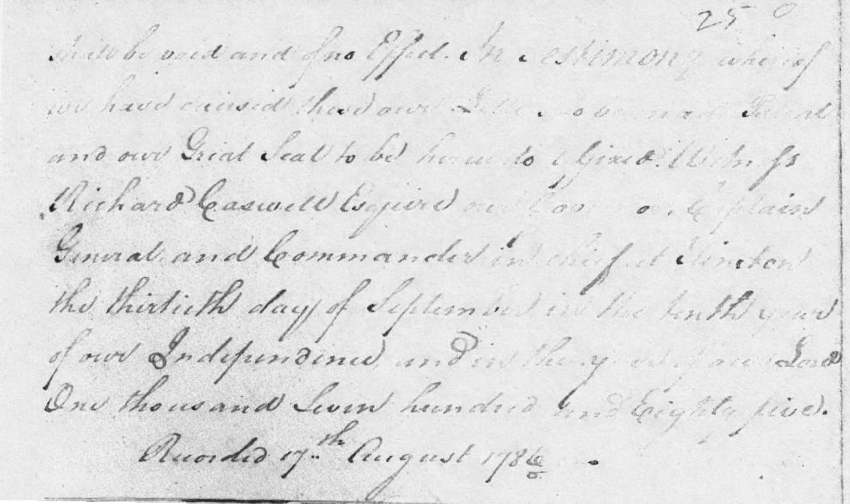 25
shall be void and of no Effect. In Testimony whereof
we have caused these our Letters to be made Patent
and our Great Seal to be hereunto affixed. Witness
Richard Caswell Esquire our Governor, Captain
General and Commander in chief at Kinston
the thirtieth day of September in the tenth year
of our Independence and in the year of our Lord
One thousand Seven hundred and Eighty five.
Recorded 17th August 1786